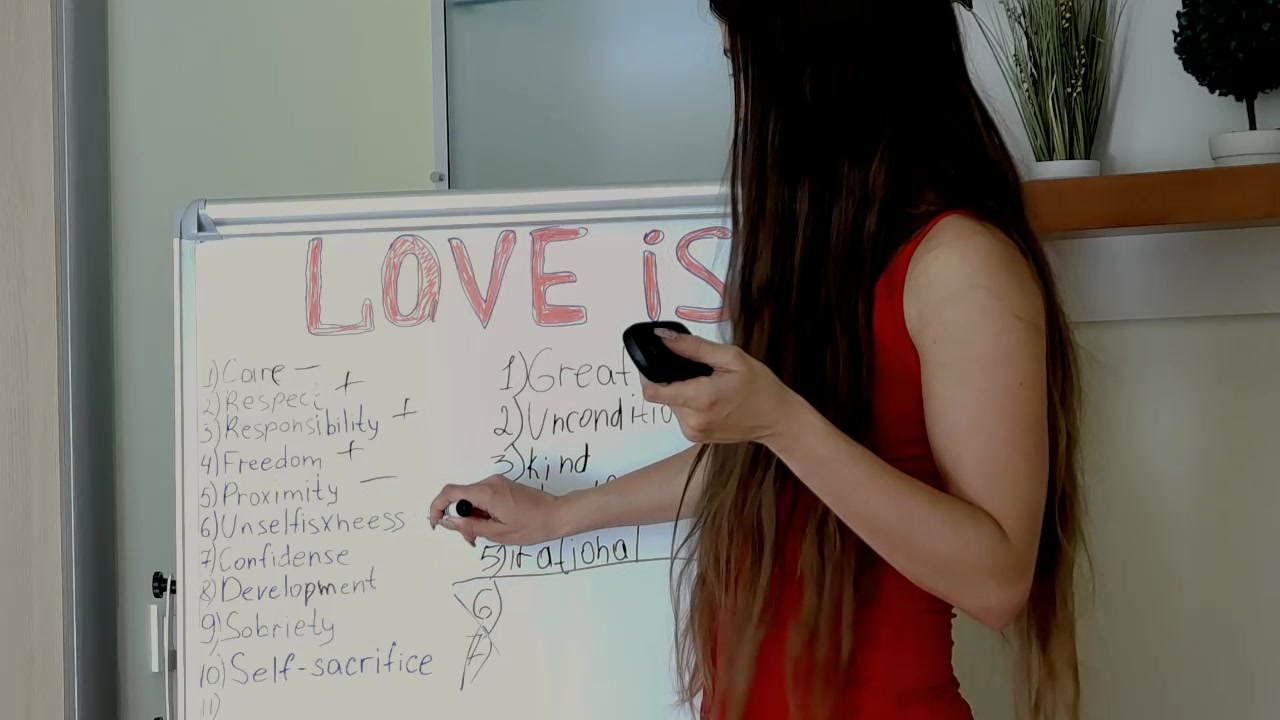 LOVE is
1) Care —
2) Respect +
3) Responsibility +
4) Freedom +
5) Proximity —
6) Unselfisxheess
7) Confidense
8) Development
9) Sobriety
10) Self-sacrifice
11)
1) Great
2) Unconditio
3) kind
5) irational
6)
7)